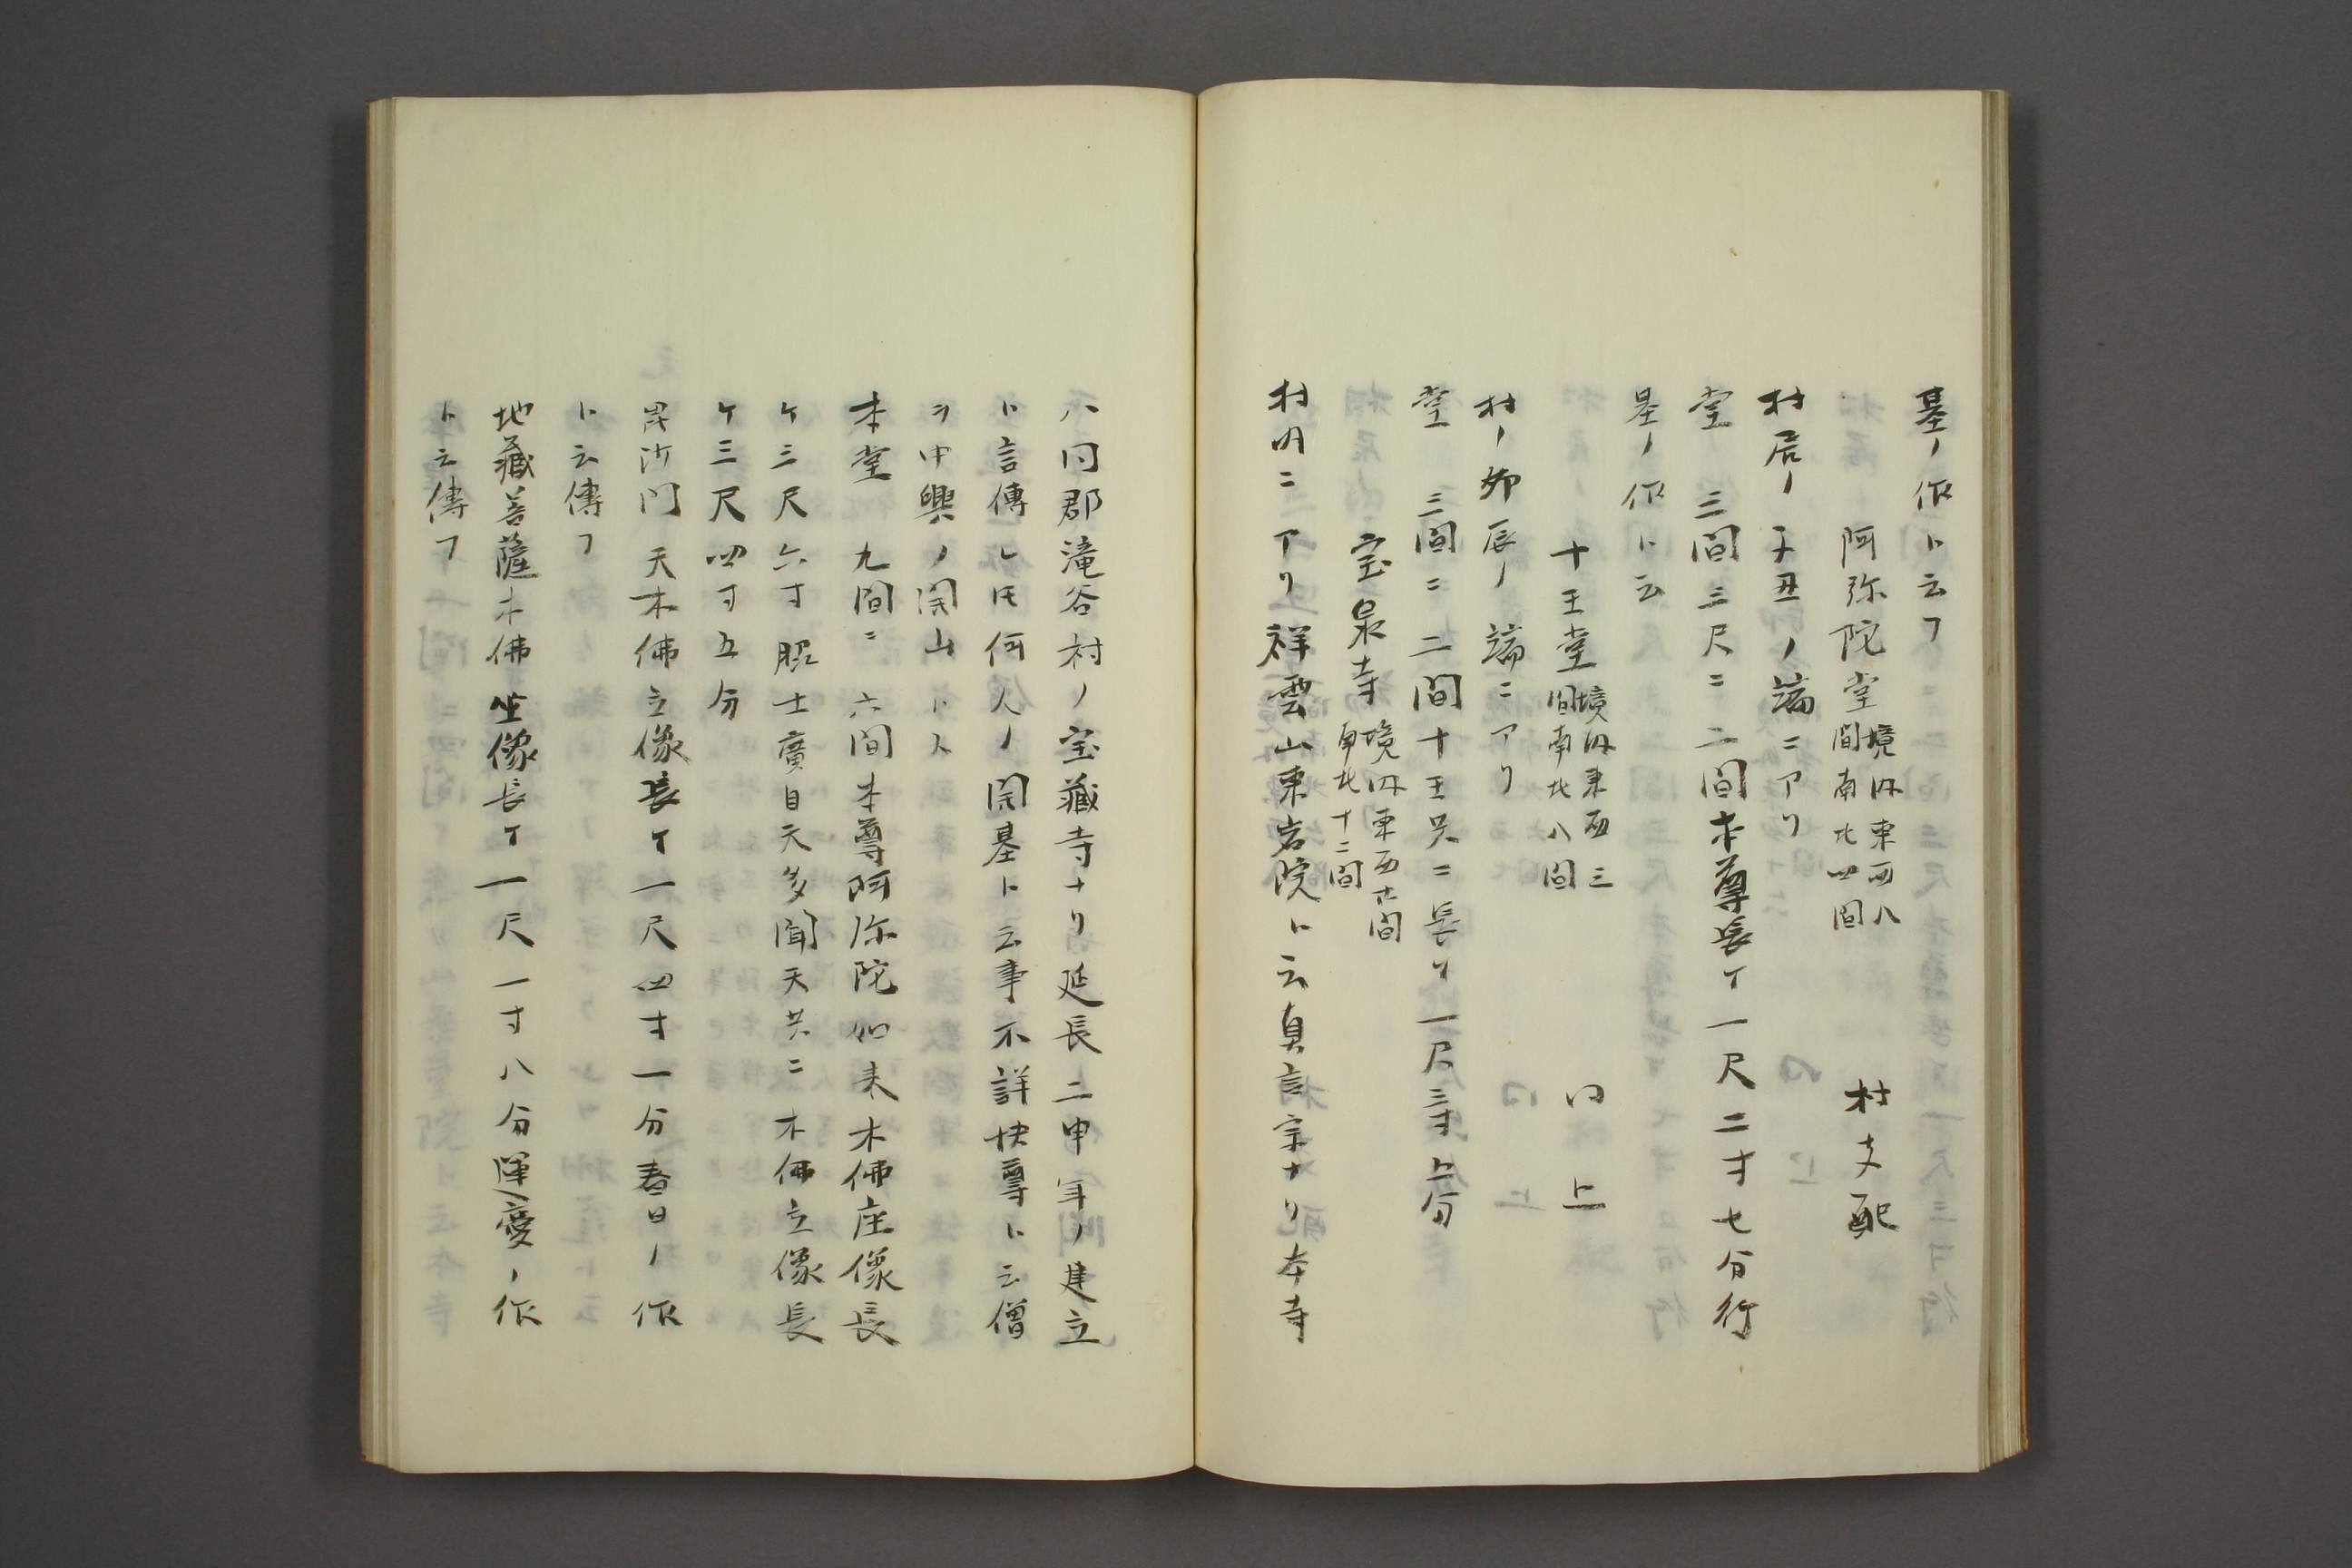 基ノ作ト云フ
阿弥陀堂 境内東西八間南北四間 村支配
村居ノ子丑ノ端ニアリ
堂 三間三尺ニ二間本尊長ケ一尺二寸七分行
基ノ作ト云
十王堂 境内東西三間南北八間 同上
村ノ卯辰ノ端ニアリ
堂 三間ニ二間十王共ニ長ケ一尺三寸上分
宝泉寺 境内東西廿間南北十二間
村内ニアリ祥雲山東岩院ト云真言宗ナリ本寺
ハ同郡滝谷村ノ宝蔵寺ナリ延長二申年ノ建立
ト言傳レ𪜈何人ノ開基ト云事不詳快尊ト云僧
ヲ中興ノ開山トス
本堂 九間ニ六間本尊阿弥陀如来木佛座像長
ケ三尺六寸 脇士廣目天多聞天共ニ木佛立像長
ケ三尺四寸五分
毘沙門天木佛立像長ケ一尺四寸一分春日ノ作
ト云傳フ
地蔵菩薩木佛坐像長ケ一尺一寸八分運慶ノ作
ト云傳フ